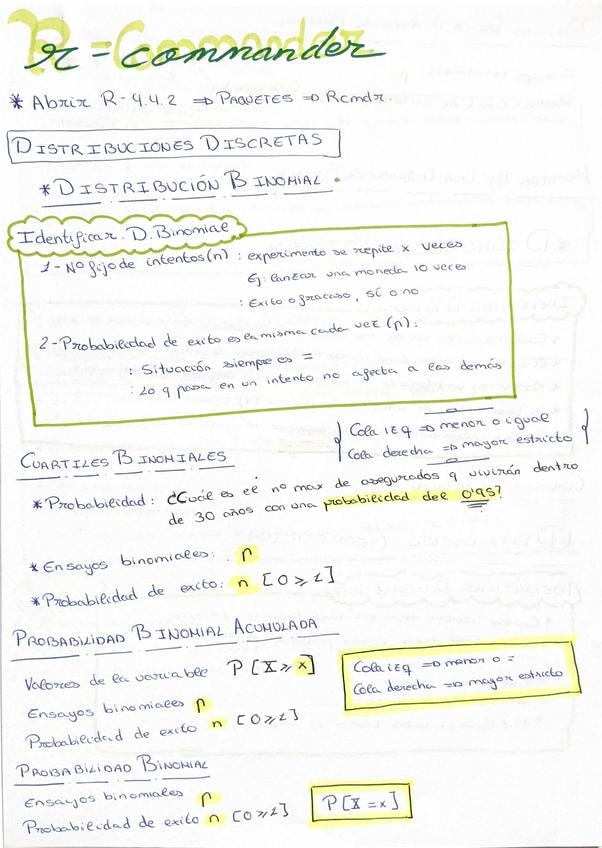 R-Commander
r-commander
* Abrir R-4.4.2 ⇒ PAQUETES ⇒ Rcmdr.
DISTRIBUCIONES DISCRETAS
* DISTRIBUCIÓN BINOMIAL.
Identificar D. Binomial
1- Nº fijo de intentos (n) : experimento se repite x veces
Ej: lanzar una moneda 10 veces
: Exito o fracaso, sí o no
2- Probabilidad de exito es la misma cada vez (p):
: Situación siempre es =
: Lo q pasa en un intento no afecta a las demás
Cola izq ⇒ menor o igual
Cola derecha ⇒ mayor estricto
CUARTILES BINOMIALES
* Probabilidad: ¿Cuál es el nº max de asegurados q vivirán dentro
de 30 años con una probabilidad del 0'95?
* Ensayos binomiales: p
* Probabilidad de exito: n [0 ≥ 1]
PROBABILIDAD BINOMIAL ACUMULADA
Valores de la variable P[X ≥ x]
Ensayos binomiales p
Probabilidad de exito n [0 ≥ 1]
Cola izq ⇒ menor o =
Cola derecha ⇒ mayor estricto
PROBABILIDAD BINOMIAL
Ensayos binomiales p
Probabilidad de exito n [0 ≥ 1]
P[X = x]